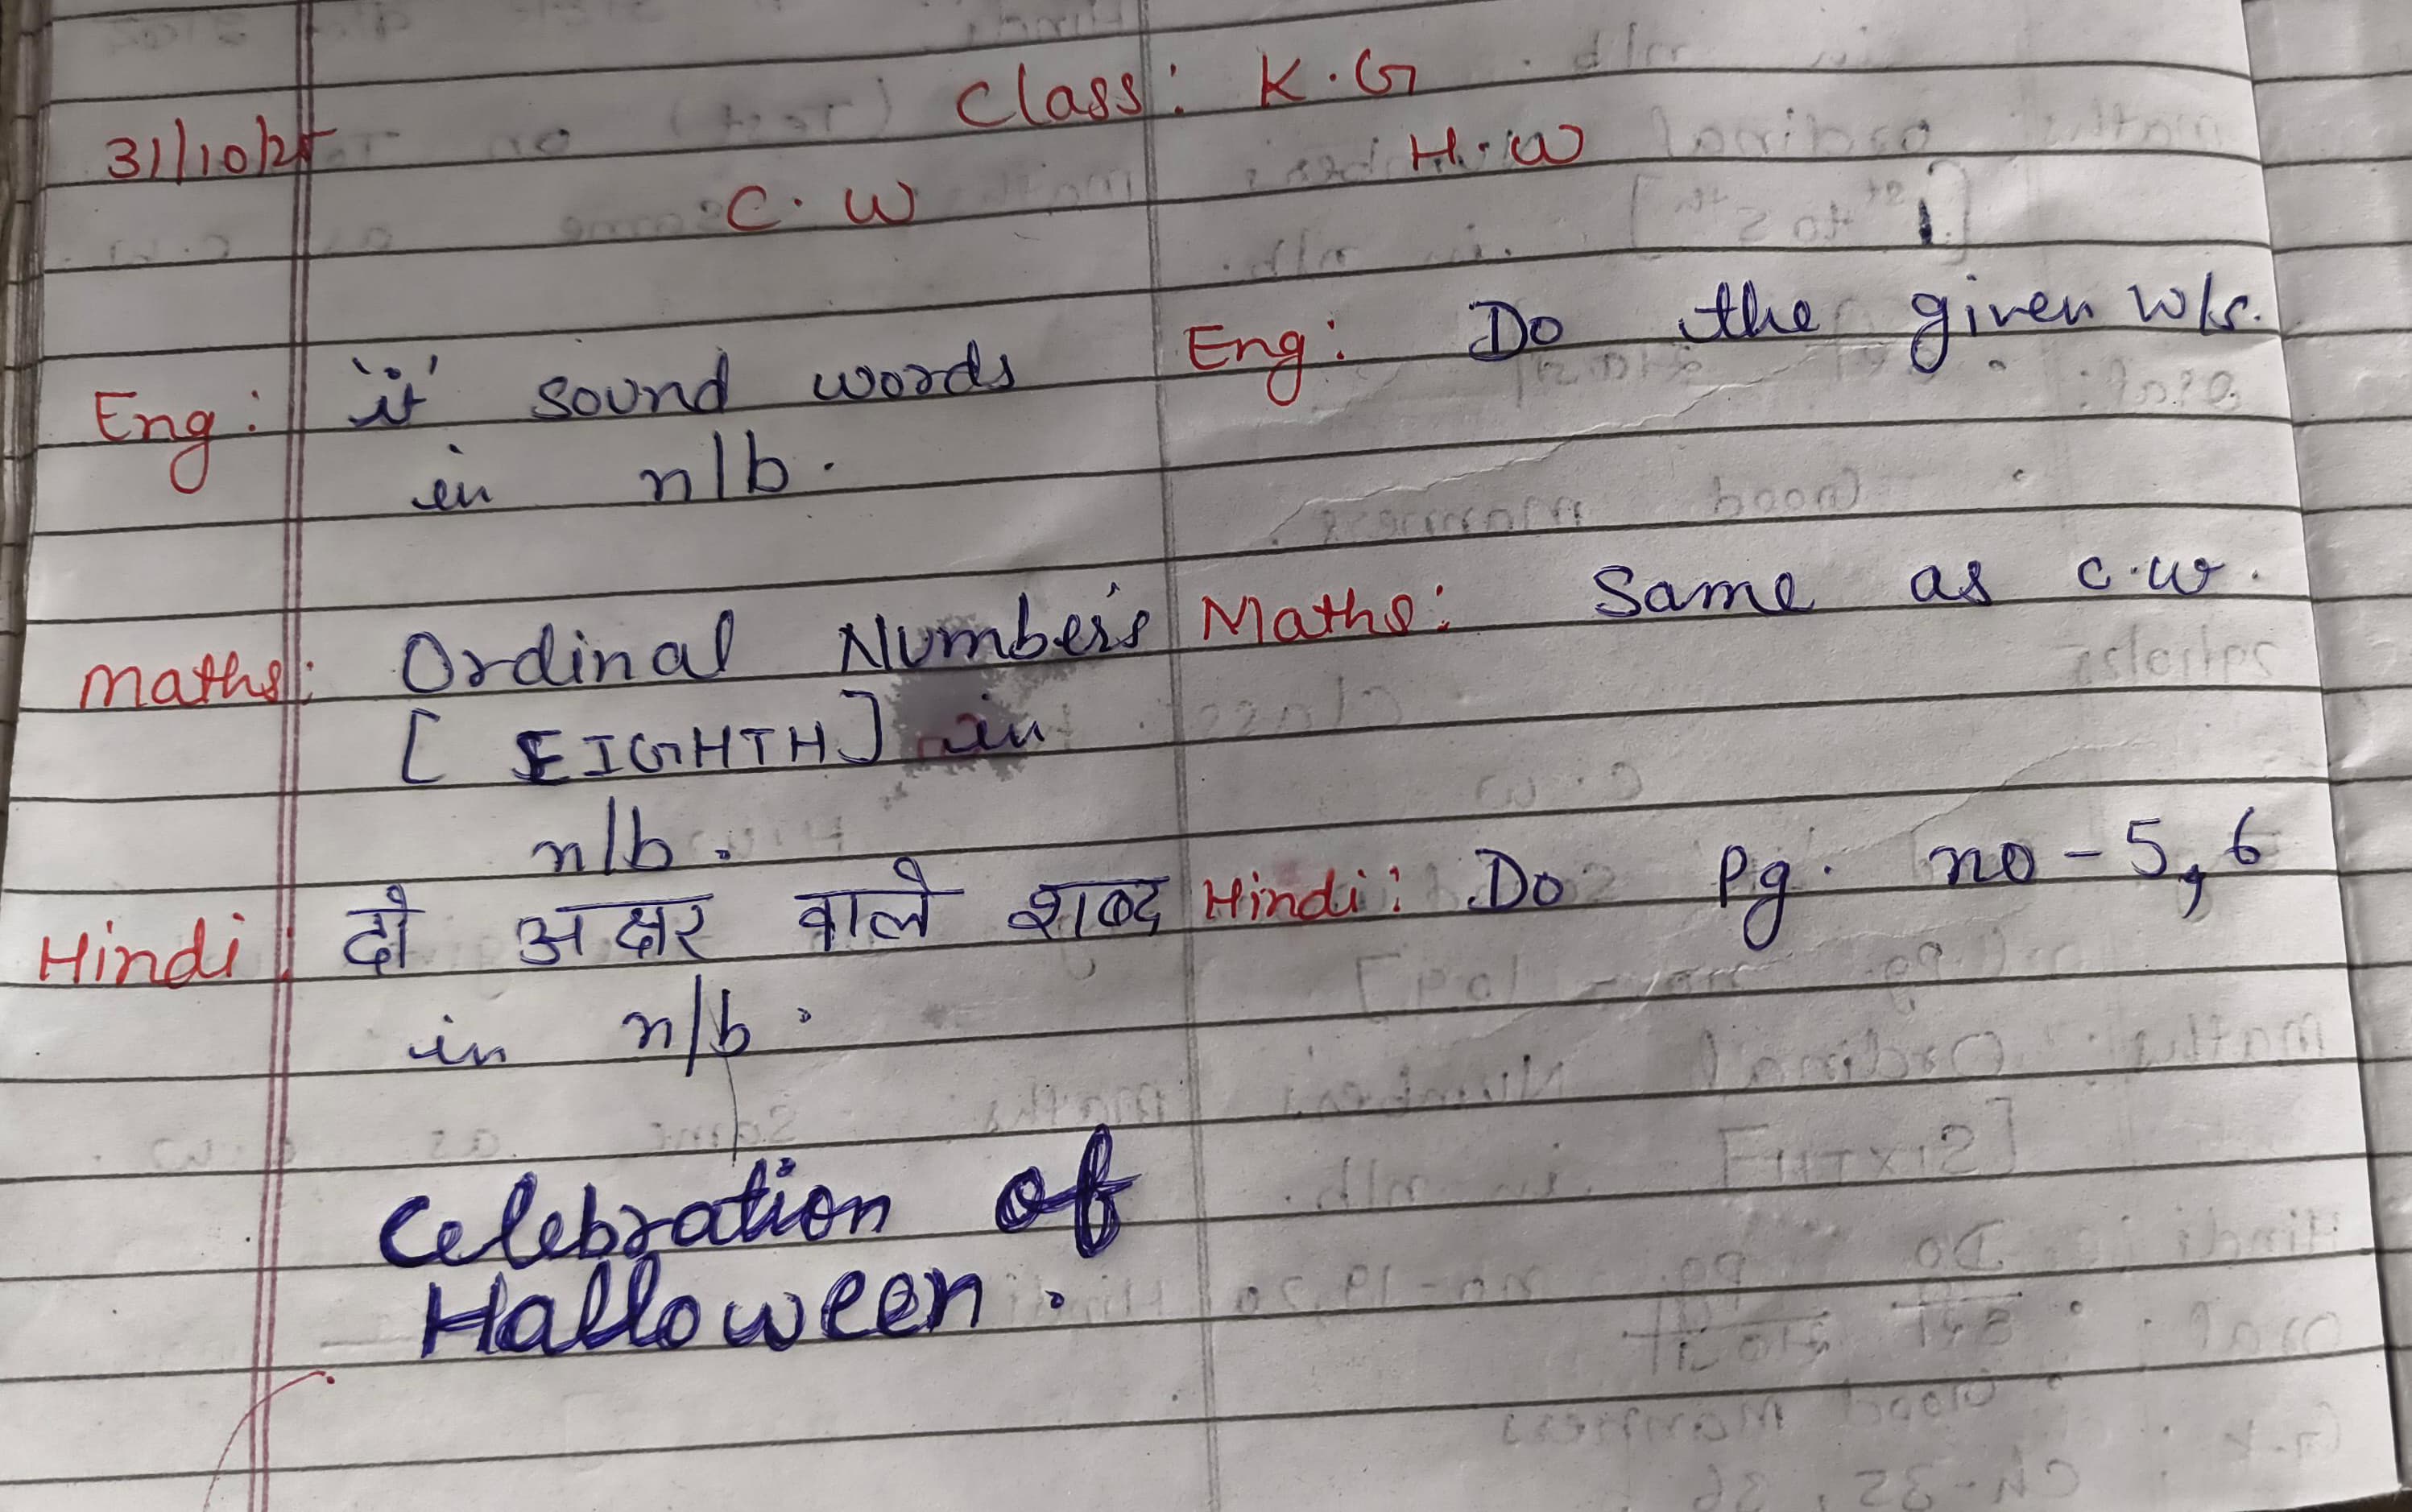 Class: K.G
31/10/25
C.W
H.W
Eng: 'it' sound words
in n/b.
Eng: Do the given w/s.
Maths: Ordinal Number's
[EIGHTH] in
n/b.
Maths: Same as c.w.
Hindi: दो अक्षर वाले शब्द
in n/b.
Hindi: Do Pg. no-5,6
Celebration of
Halloween.